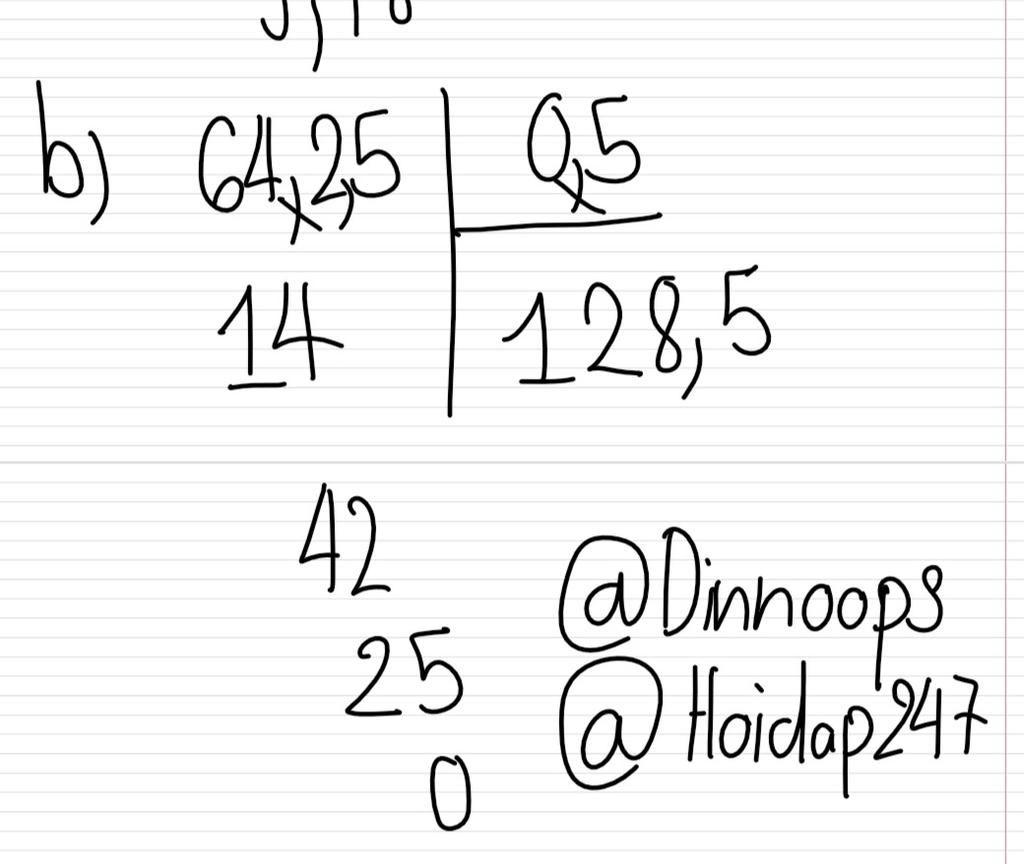 b) 64,2,5 0,5
14 128,5
42
25
0
@Dinhoops
@Hoidap247